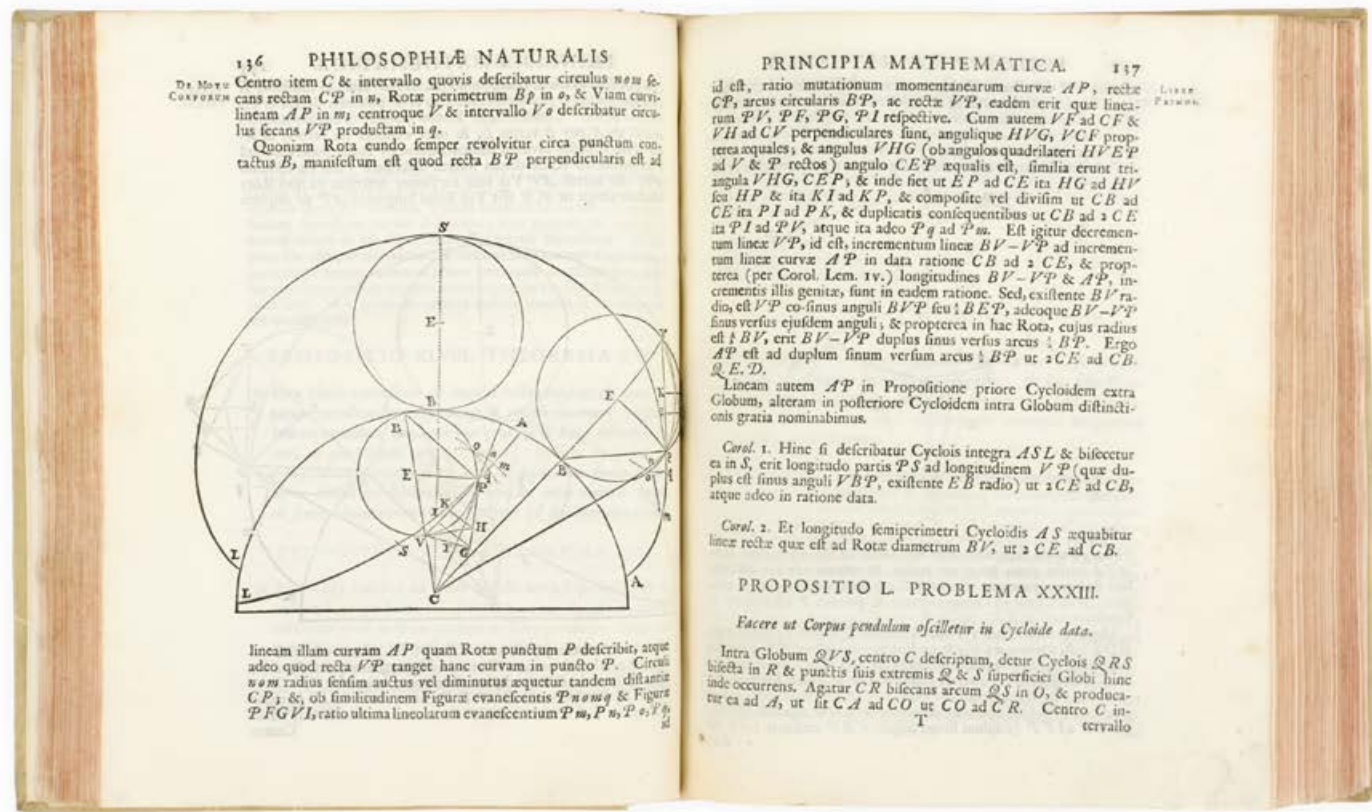 136 PHILOSOPHIÆ NATURALIS
DE MOTU CORPORUM
Centro item C & intervallo quovis deſcribatur circulus nom ſe-
cans rectam CP in n, Rotæ perimetrum Bp in o, & Viam curvi-
lineam AP in m; centroque V & intervallo Vo deſcribatur circu-
lus ſecans VP productam in q.
Quoniam Rota eundo ſemper revolvitur circa punctum con-
tactus B, manifeſtum eſt quod recta BP perpendicularis eſt ad
S
E
B
B A
O
n
m
E
P
K
I
H
S V F G
L
L
C
A
V
E
K
B
P
q
n
o
m
lineam illam curvam AP quam Rotæ punctum P deſcribit, atque
adeo quod recta VP tanget hanc curvam in puncto P. Circuli
nom radius ſenſim auctus vel diminutus æquetur tandem diſtantiæ
CP; &, ob ſimilitudinem Figuræ evaneſcentis Pnomq & Figuræ
PFGVI, ratio ultima lineolarum evaneſcentium Pm, Pn, Po, Pq,
id
PRINCIPIA MATHEMATICA. 137
LIBER PRIMUS.
id eſt, ratio mutationum momentanearum curvæ AP, rectæ
CP, arcus circularis BP, ac rectæ VP, eadem erit quæ linea-
rum PV, PF, PG, PI reſpective. Cum autem VF ad CF &
VH ad CV perpendiculares ſunt, angulique HVG, VCF prop-
terea æquales; & angulus VHG (ob angulos quadrilateri HVEP
ad V & P rectos) angulo CEP æqualis eſt, ſimilia erunt tri-
angula VHG, CEP; & inde fiet ut EP ad CE ita HG ad HV
ſeu HP & ita KI ad KP, & compoſite vel diviſim ut CB ad
CE ita PI ad PK, & duplicatis conſequentibus ut CB ad 2CE
ita PI ad PV, atque ita adeo Pq ad Pm. Eſt igitur decremen-
tum lineæ VP, id eſt, incrementum lineæ BV−VP ad incremen-
tum lineæ curvæ AP in data ratione CB ad 2CE, & prop-
terea (per Corol. Lem. IV.) longitudines BV−VP & AP, in-
crementis illis genitæ, ſunt in eadem ratione. Sed, exiſtente BV ra-
dio, eſt VP co-ſinus anguli BVP ſeu ½BEP, adeoque BV−VP
ſinus verſus ejuſdem anguli; & propterea in hac Rota, cujus radius
eſt ½BV, erit BV−VP duplus ſinus verſus arcus ½BP. Ergo
AP eſt ad duplum ſinum verſum arcus ½BP ut 2CE ad CB.
Q.E.D.
Lineam autem AP in Propoſitione priore Cycloidem extra
Globum, alteram in poſteriore Cycloidem intra Globum diſtincti-
onis gratia nominabimus.
Corol. 1. Hinc ſi deſcribatur Cyclois integra ASL & biſecetur
ea in S, erit longitudo partis PS ad longitudinem VP (quæ du-
plus eſt ſinus anguli VBP, exiſtente EB radio) ut 2CE ad CB,
atque adeo in ratione data.
Corol. 2. Et longitudo ſemiperimetri Cycloidis AS æquabitur
lineæ rectæ quæ eſt ad Rotæ diametrum BV, ut 2CE ad CB.
PROPOSITIO L. PROBLEMA XXXIII.
Facere ut Corpus pendulum oſcilletur in Cycloide data.
Intra Globum QVS, centro C deſcriptum, detur Cyclois QRS
biſecta in R & punctis ſuis extremis Q & S ſuperficiei Globi hinc
inde occurrens. Agatur CR biſecans arcum QS in O, & produca-
tur ea ad A, ut ſit CA ad CO ut CO ad CR. Centro C in-
T tervallo